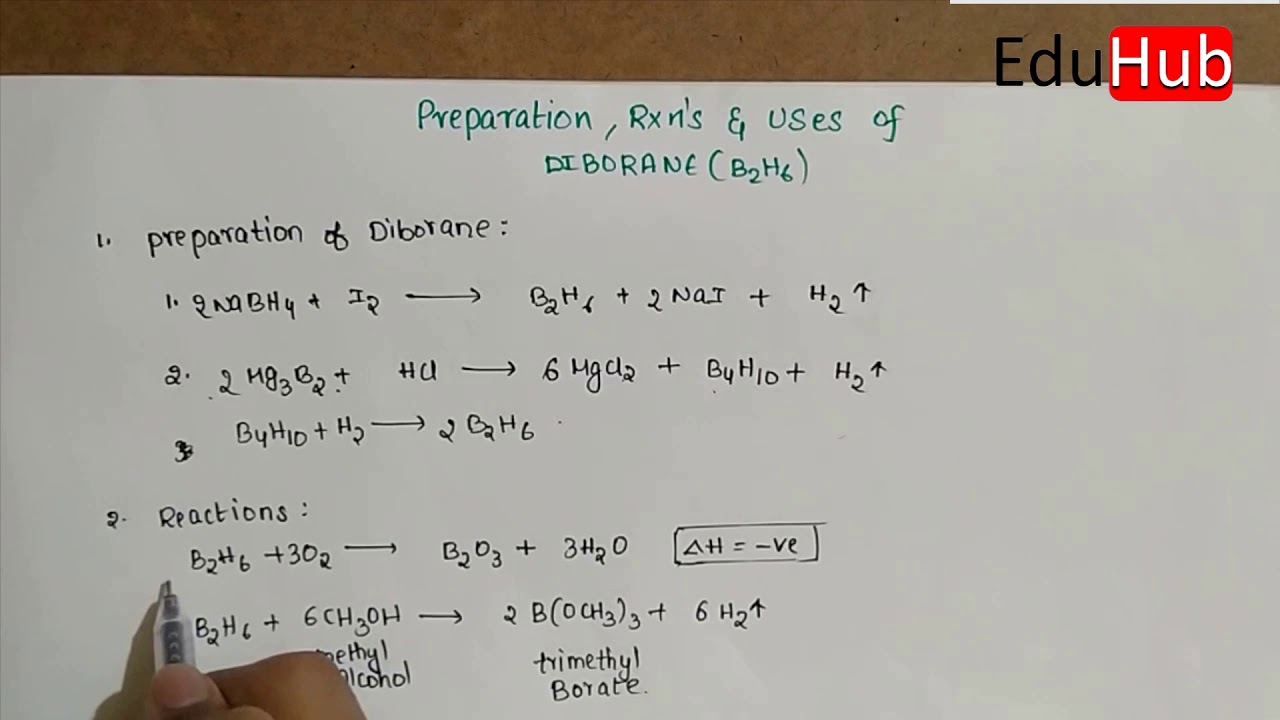 EduHub
Preparation, Rxn's & Uses of
DIBORANE (B2H6)
1. preparation of Diborane:
1. 2NaBH4 + I2 ⟶ B2H6 + 2NaI + H2↑
2. 2Mg3B2 + HCl ⟶ 6MgCl2 + B4H10 + H2↑
3 B4H10 + H2 ⟶ 2B2H6
2. Reactions:
B2H6 + 3O2 ⟶ B2O3 + 3H2O ΔH = -ve
B2H6 + 6CH3OH ⟶ 2B(OCH3)3 + 6H2↑
trimethyl
Borate.